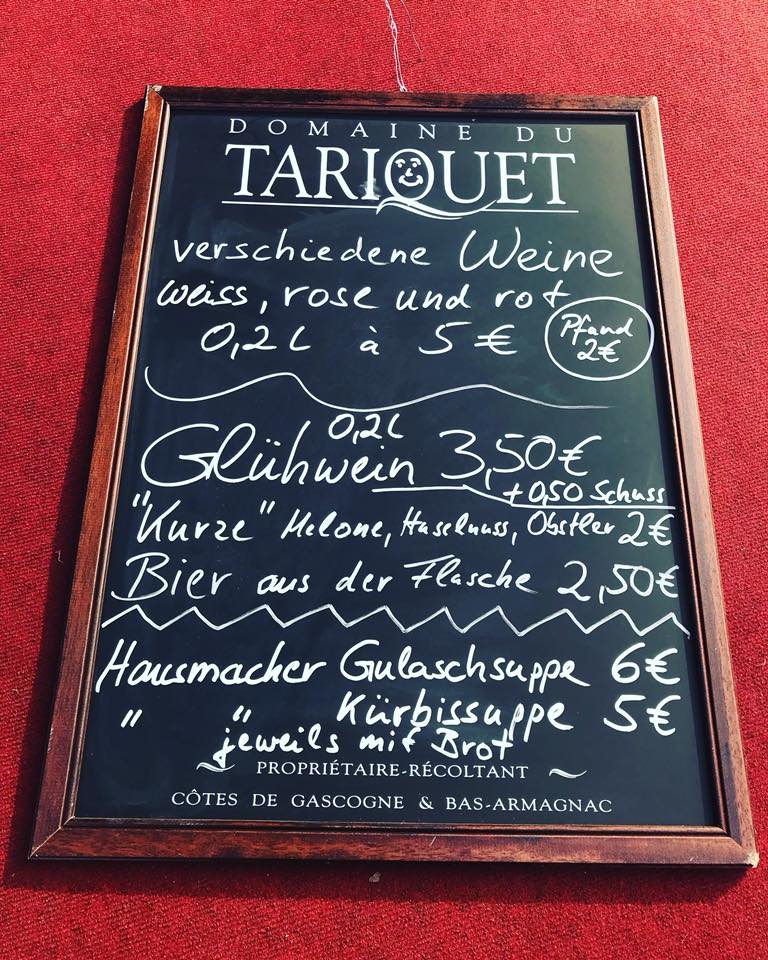 DOMAINE DU
TARIQUET
verschiedene Weine
weiss, rose und rot
0,2 L à 5 €
Pfand
2€
0,2L
Glühwein 3,50€
+ 0,50 Schuss
"Kurze" Melone, Haselnuss, Obstler 2€
Bier aus der Flasche 2,50€
Hausmacher Gulaschsuppe 6€
" " Kürbissuppe 5€
jeweils mit Brot
PROPRIÉTAIRE-RÉCOLTANT
CÔTES DE GASCOGNE & BAS-ARMAGNAC